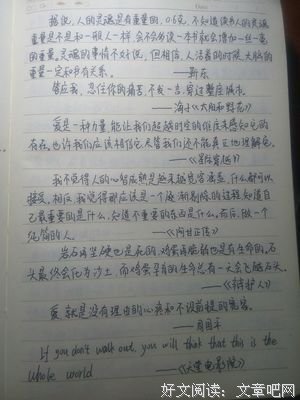 据说,人的灵魂是有重量的,0.6克。不知道读书人的灵魂
重量是不是和一般人一样,会不会多读一本书就多增加一丝一毫
的重量。灵魂的事情不好说,但相信,人活着的时候,大脑的
重量一定和书有关系。
——靳东
答应我,忍住你的痛苦,不发一言,穿过整座城市。
——海小《太阳和野花》
爱是一种力量,能让我们超越时空的维度来感知它的
存在。也许我们应该相信它,尽管我们还不能真正地理解它。
——《星际穿越》
我不觉得人的心智成熟是越来越宽容涵盖,什么都可以
接受。相反,我觉得那应该是一个逐渐剔除的过程,知道自
己最重要的是什么,知道不重要的东西是什么。而后,做一个
纯简的人。 ——《阿甘正传》
岩石再坚硬也是死的,鸡蛋再脆弱也是有生命的。石
头最终会化为沙土,而鸡蛋孕育的生命总有一天会飞越石头。
——《辩护人》
爱,就是没有理由的心疼和不设前提的宽容。
——周国平
If you don't walk out, you will think that this is the
whole world ——《天堂电影院》
好文阅读:文章吧网